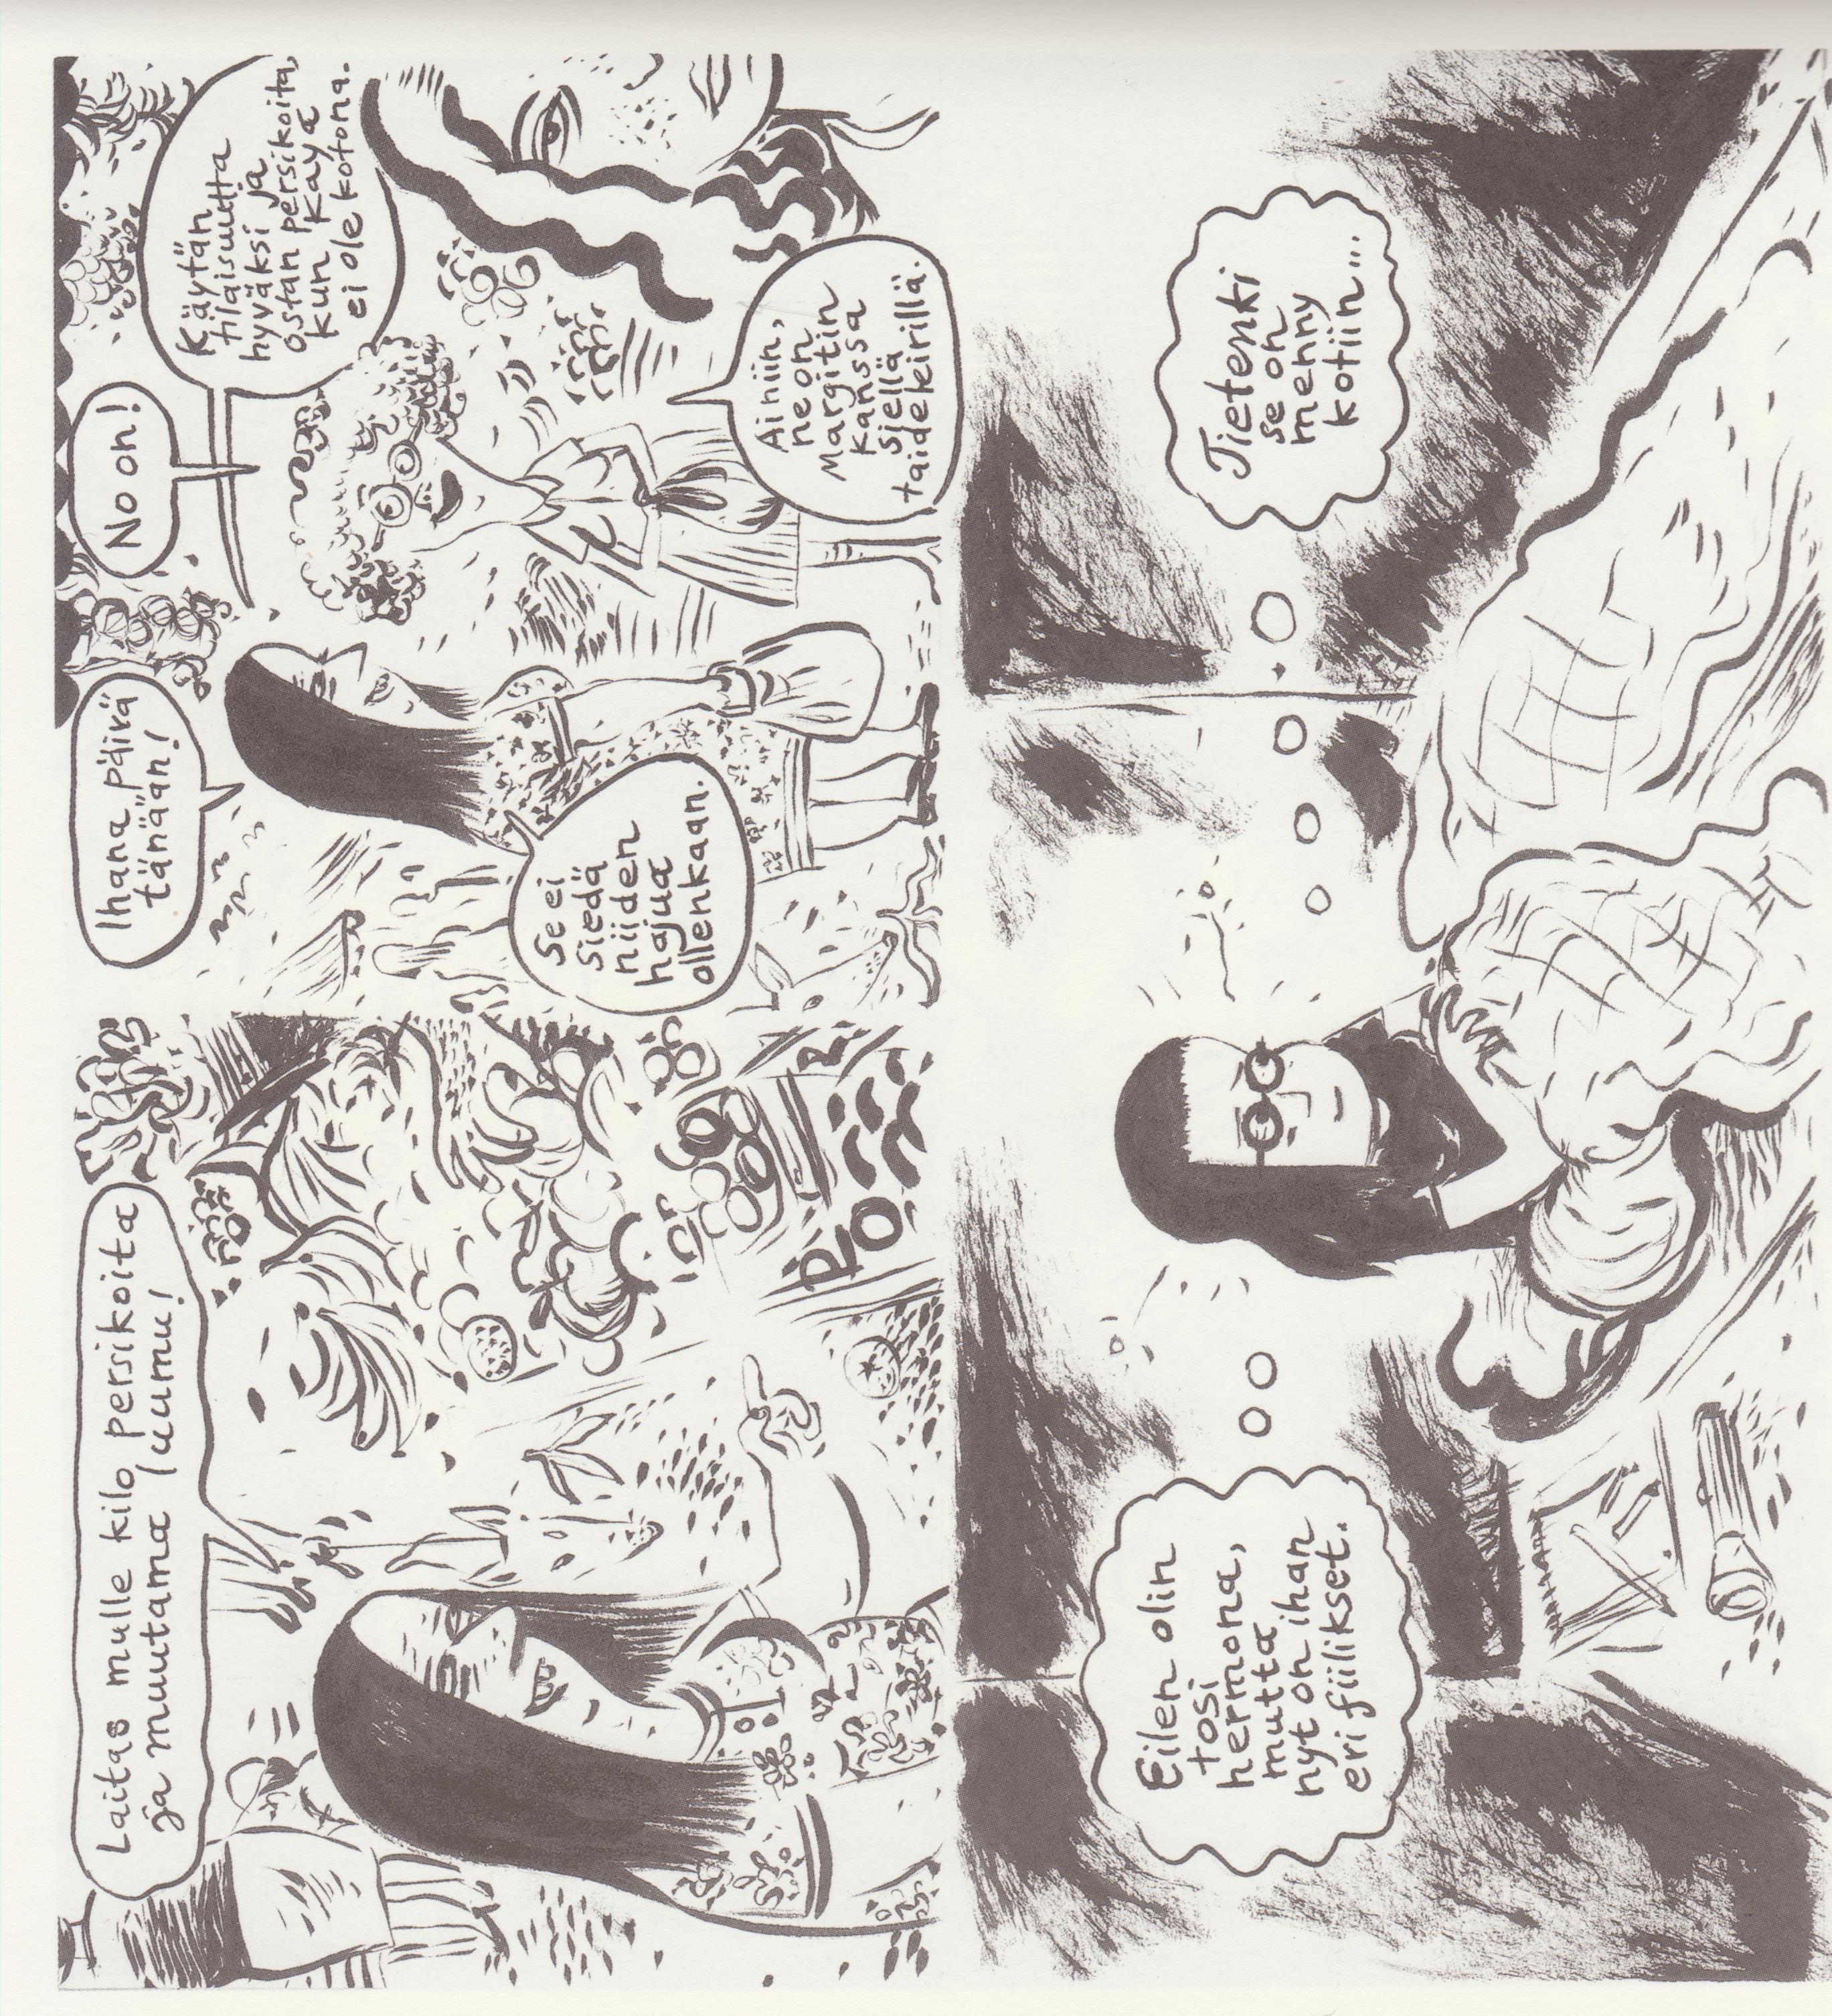 Laitas mulle kilo persikoita
ja muutama luumu!
Ihana päivä
tänään!
No on!
Käytän
tilaisuutta
hyväksi ja
ostan persikoita,
kun Kaya
ei ole kotona.
Se ei
siedä
niiden
hajua
ollenkaan.
Ai niin,
ne on
Margitin
kanssa
siellä
taideleirillä.
Eilen olin
tosi
hermona,
mutta
nyt on ihan
eri fiilikset.
Tietenki
se on
menny
kotiin...